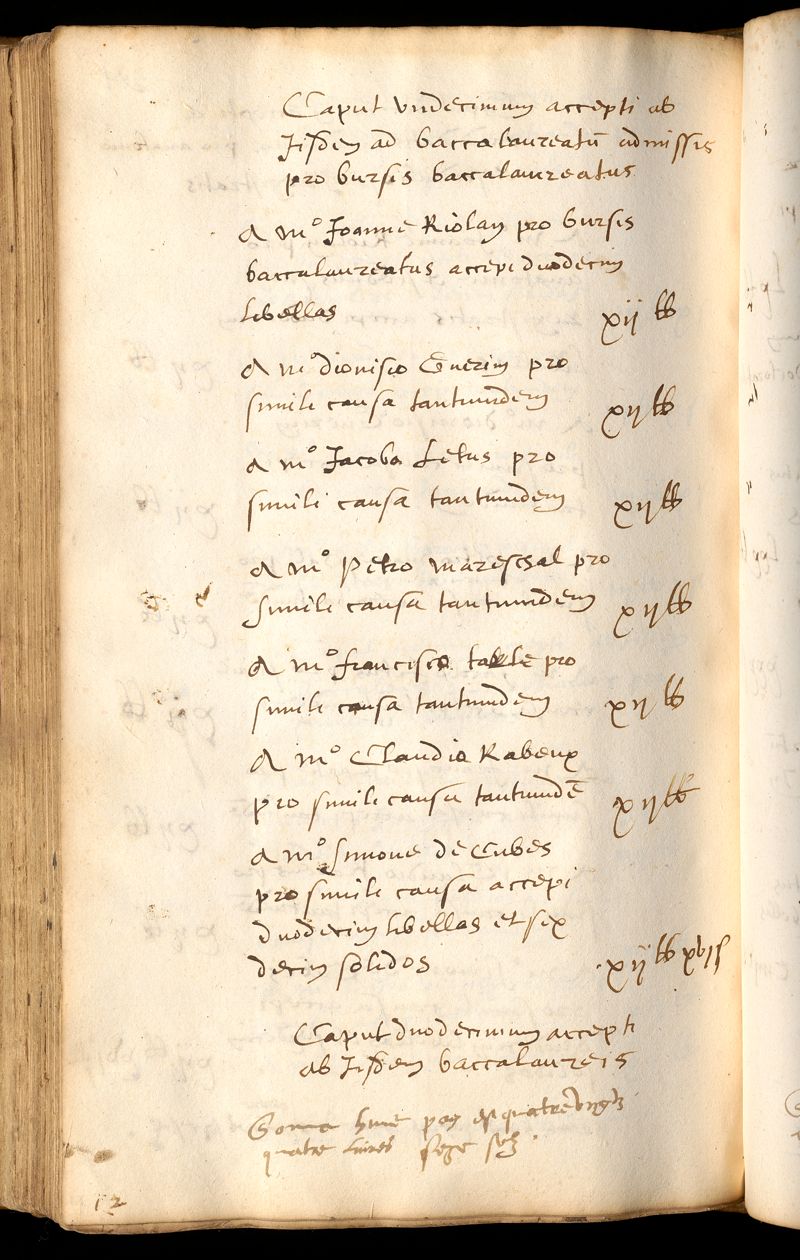 Caput vndecimum accepti ab
Iisdem ad baccalaureatū admissis
pro bursis baccalaureatus
A mo Joanne Riolan pro bursis
baccalaureatus accepi duodecim
libellas xij lb
A mo dionisio Guerin pro
simili causa tantumdem xij lb
A mo Jacobo Letus pro
simili causa tantumdem xij lb
A mo Petro mareschal pro
simili causa tantumdem xij lb
A mo francisco pro
simili causa tantumdem xij lb
A mo Claudio Rabeux
pro simili causa tantumdē xij lb
A mo Simone de Cubes
pro simili causa accepi
duodecim libellas et sex
decim solidos xij lb xvj s
Caput duodecimum accepti
ab Iisdem baccalaureis
Soma huius pag est quatre vingtz
quatre livres seze solz
12